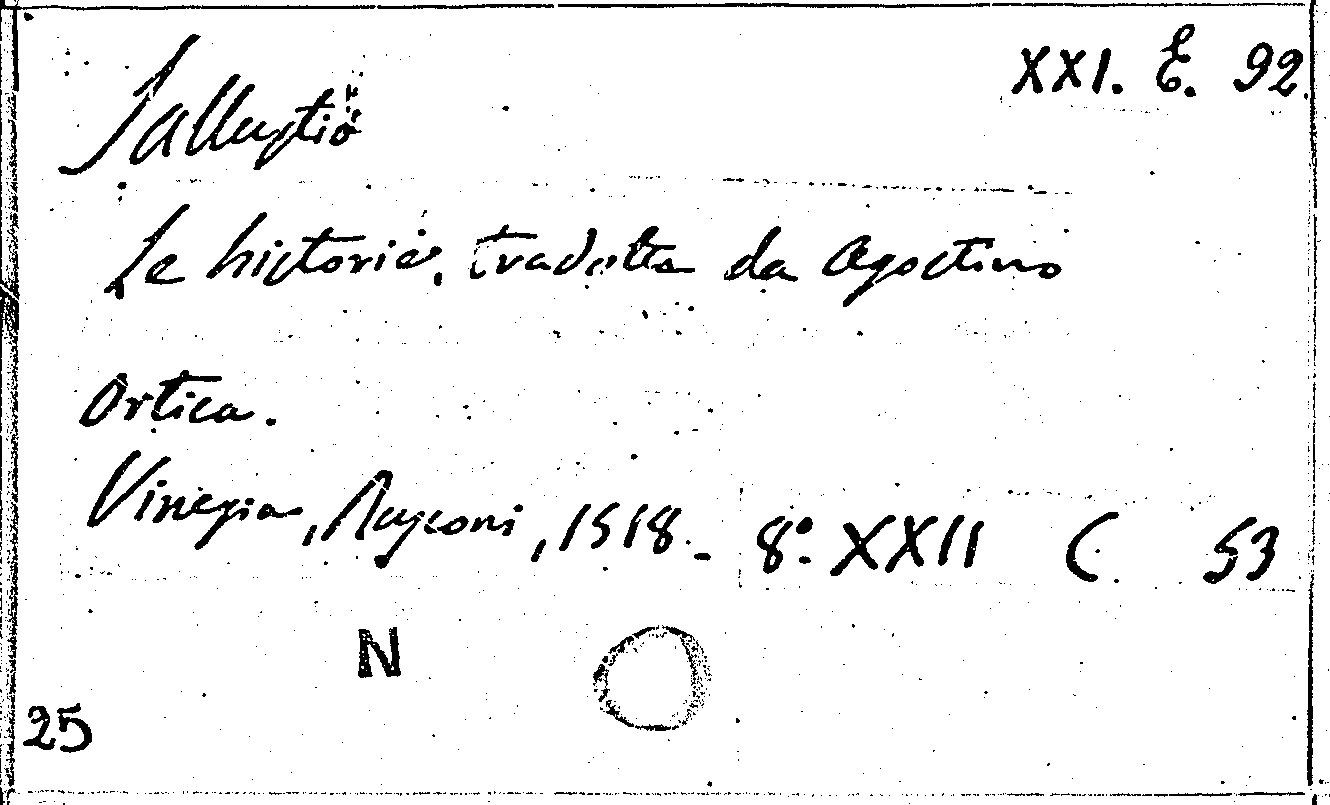 XXI. E. 92.
Sallustio
Le historie, tradotte da Agostino
Ortica.
Vinegia, Rusconi, 1518. 8° XXII C 53
N
25